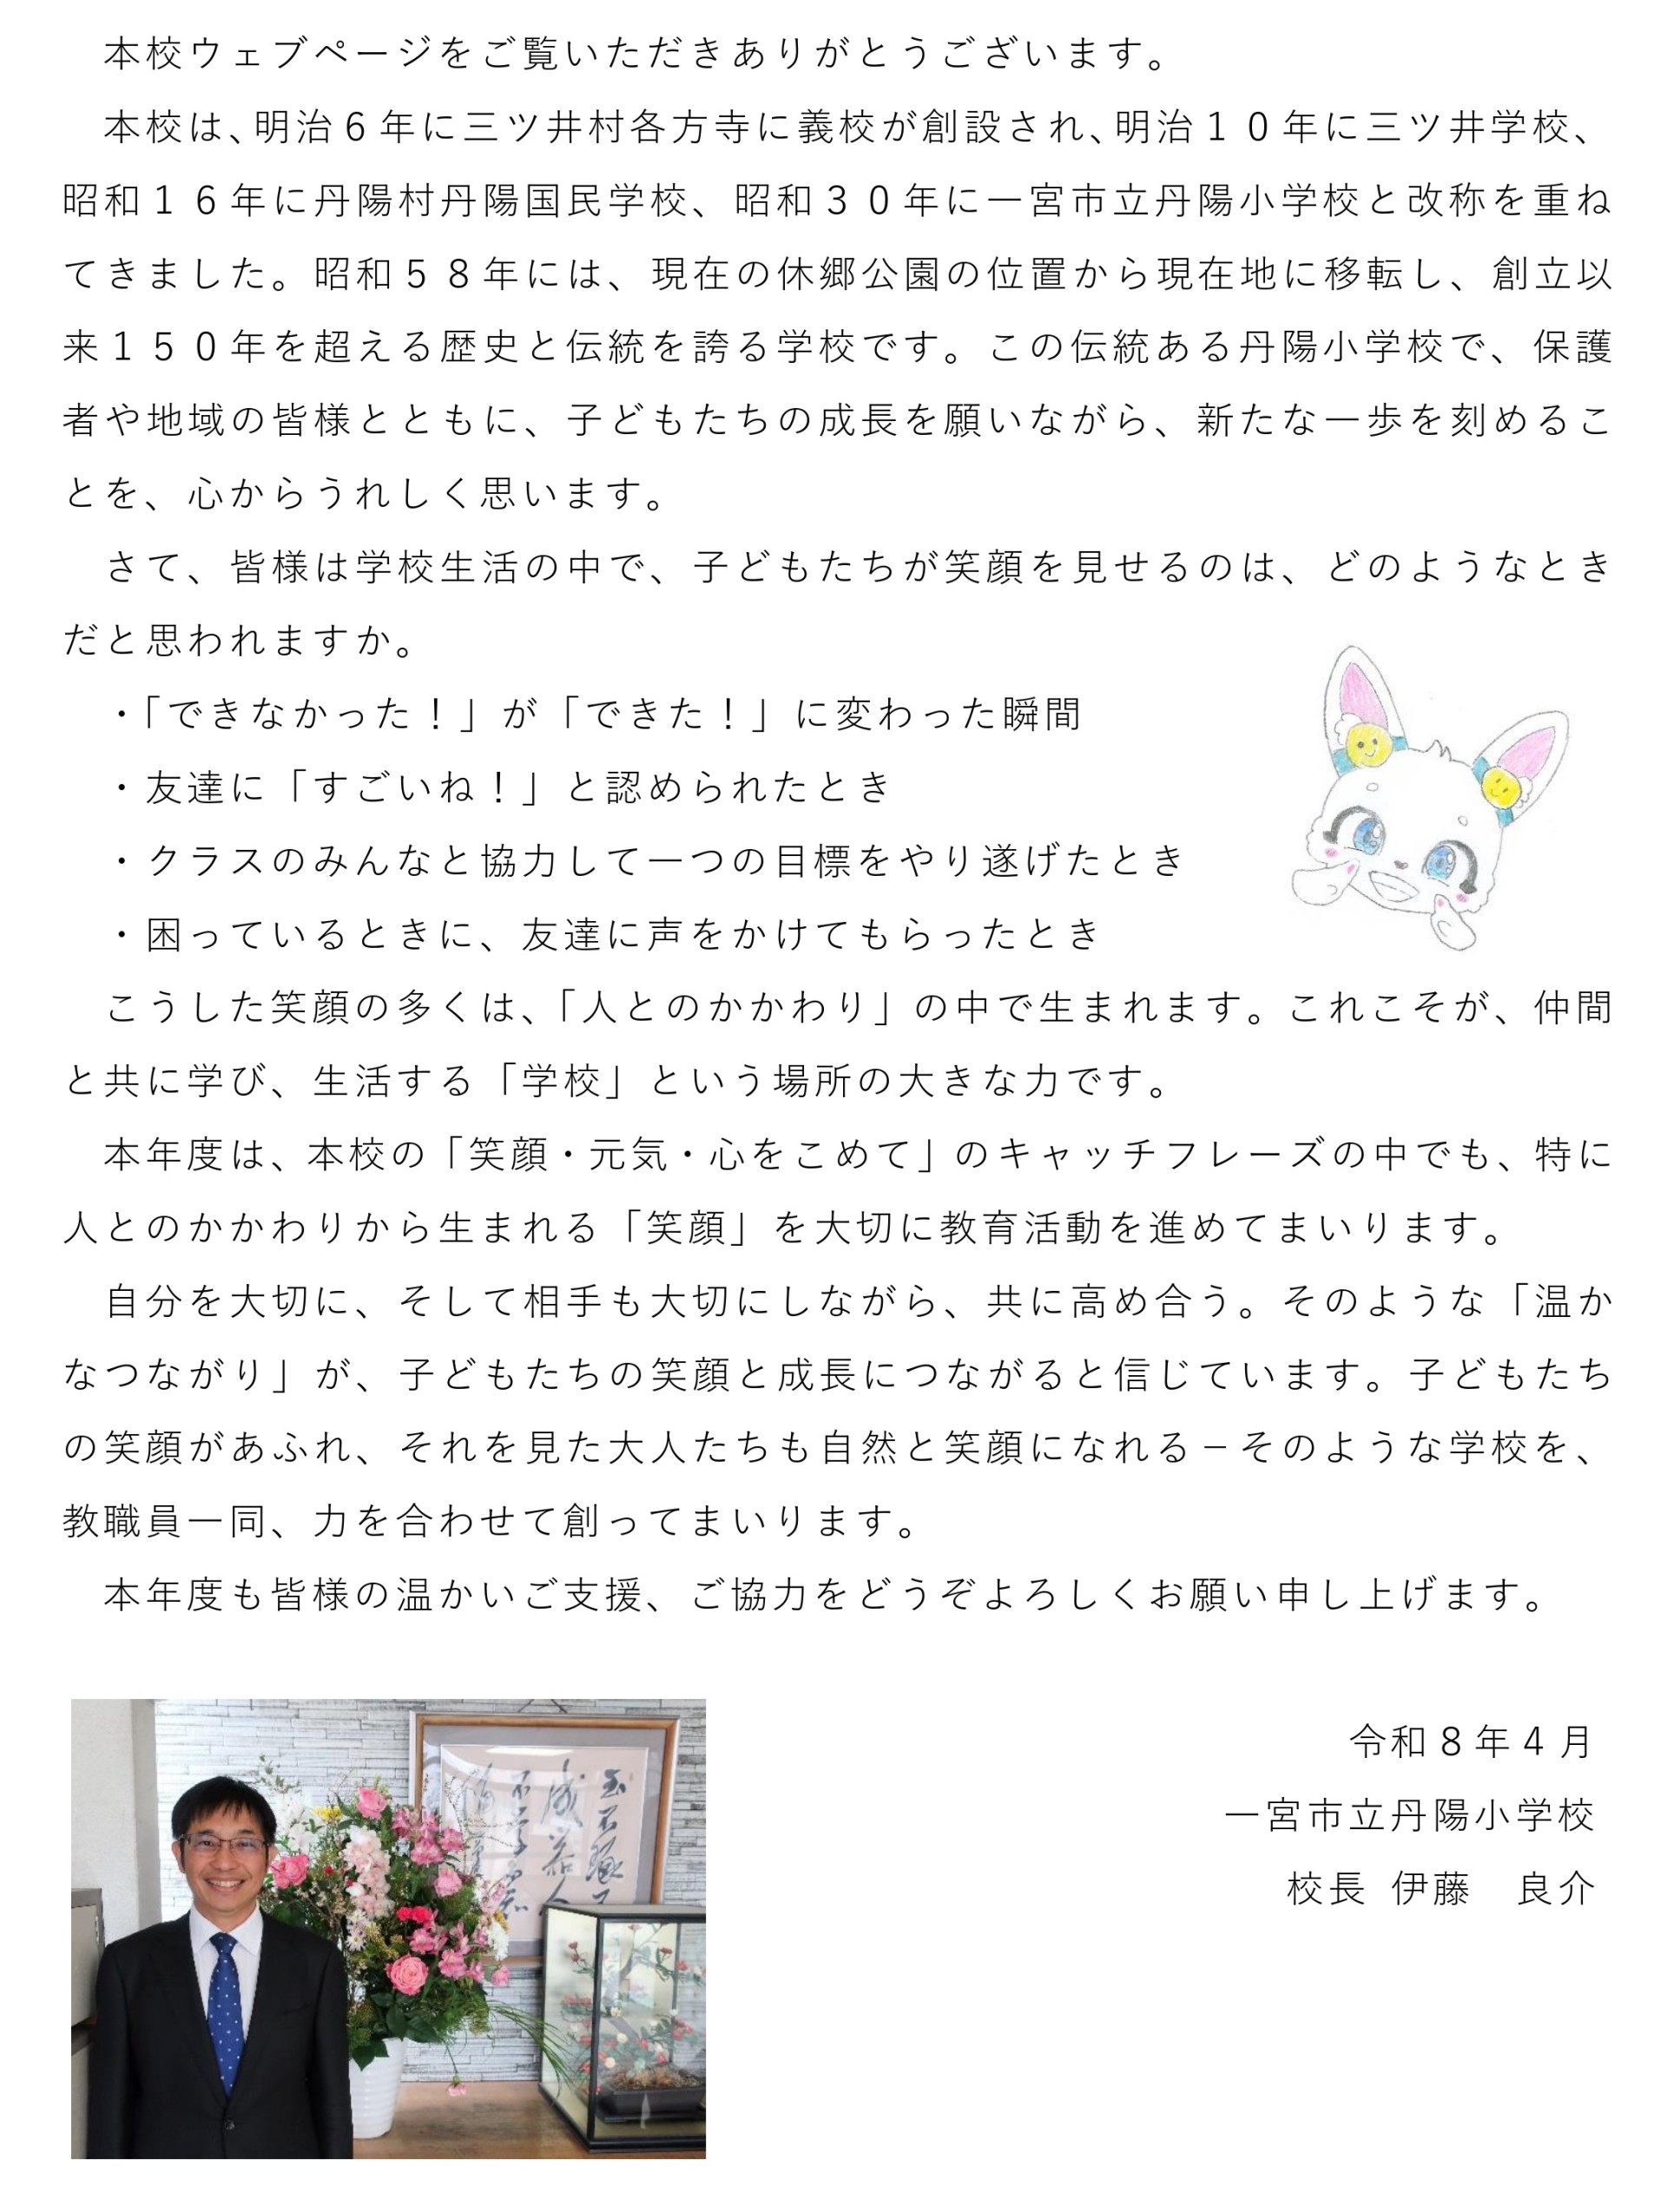 本校ウェブページをご覧いただきありがとうございます。
本校は、明治６年に三ツ井村各方寺に義校が創設され、明治１０年に三ツ井学校、
昭和１６年に丹陽村丹陽国民学校、昭和３０年に一宮市立丹陽小学校と改称を重ね
てきました。昭和５８年には、現在の休郷公園の位置から現在地に移転し、創立以
来１５０年を超える歴史と伝統を誇る学校です。この伝統ある丹陽小学校で、保護
者や地域の皆様とともに、子どもたちの成長を願いながら、新たな一歩を刻めるこ
とを、心からうれしく思います。
さて、皆様は学校生活の中で、子どもたちが笑顔を見せるのは、どのようなとき
だと思われますか。
・「できなかった！」が「できた！」に変わった瞬間
・友達に「すごいね！」と認められたとき
・クラスのみんなと協力して一つの目標をやり遂げたとき
・困っているときに、友達に声をかけてもらったとき
こうした笑顔の多くは、「人とのかかわり」の中で生まれます。これこそが、仲間
と共に学び、生活する「学校」という場所の大きな力です。
本年度は、本校の「笑顔・元気・心をこめて」のキャッチフレーズの中でも、特に
人とのかかわりから生まれる「笑顔」を大切に教育活動を進めてまいります。
自分を大切に、そして相手も大切にしながら、共に高め合う。そのような「温か
なつながり」が、子どもたちの笑顔と成長につながると信じています。子どもたち
の笑顔があふれ、それを見た大人たちも自然と笑顔になれる－そのような学校を、
教職員一同、力を合わせて創ってまいります。
本年度も皆様の温かいご支援、ご協力をどうぞよろしくお願い申し上げます。
令和８年４月
一宮市立丹陽小学校
校長 伊藤　良介